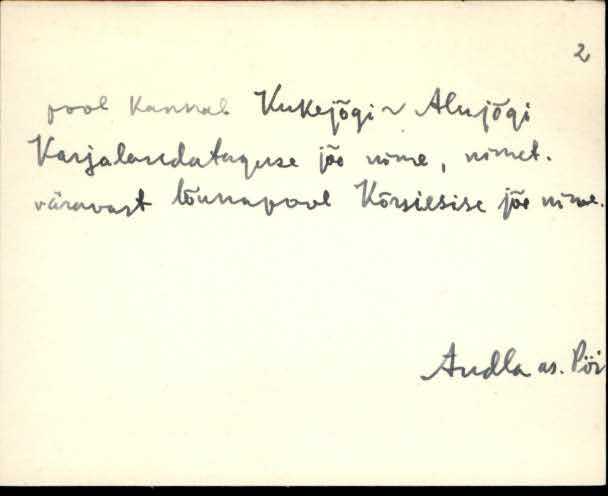 2
pool kannab Kukejõgi ~ Alujõgi
Karjalaudataguse jõe nime, nimet.
väravast lõunapool Kõrsiesise jõe nime.
Audla as. Pöi